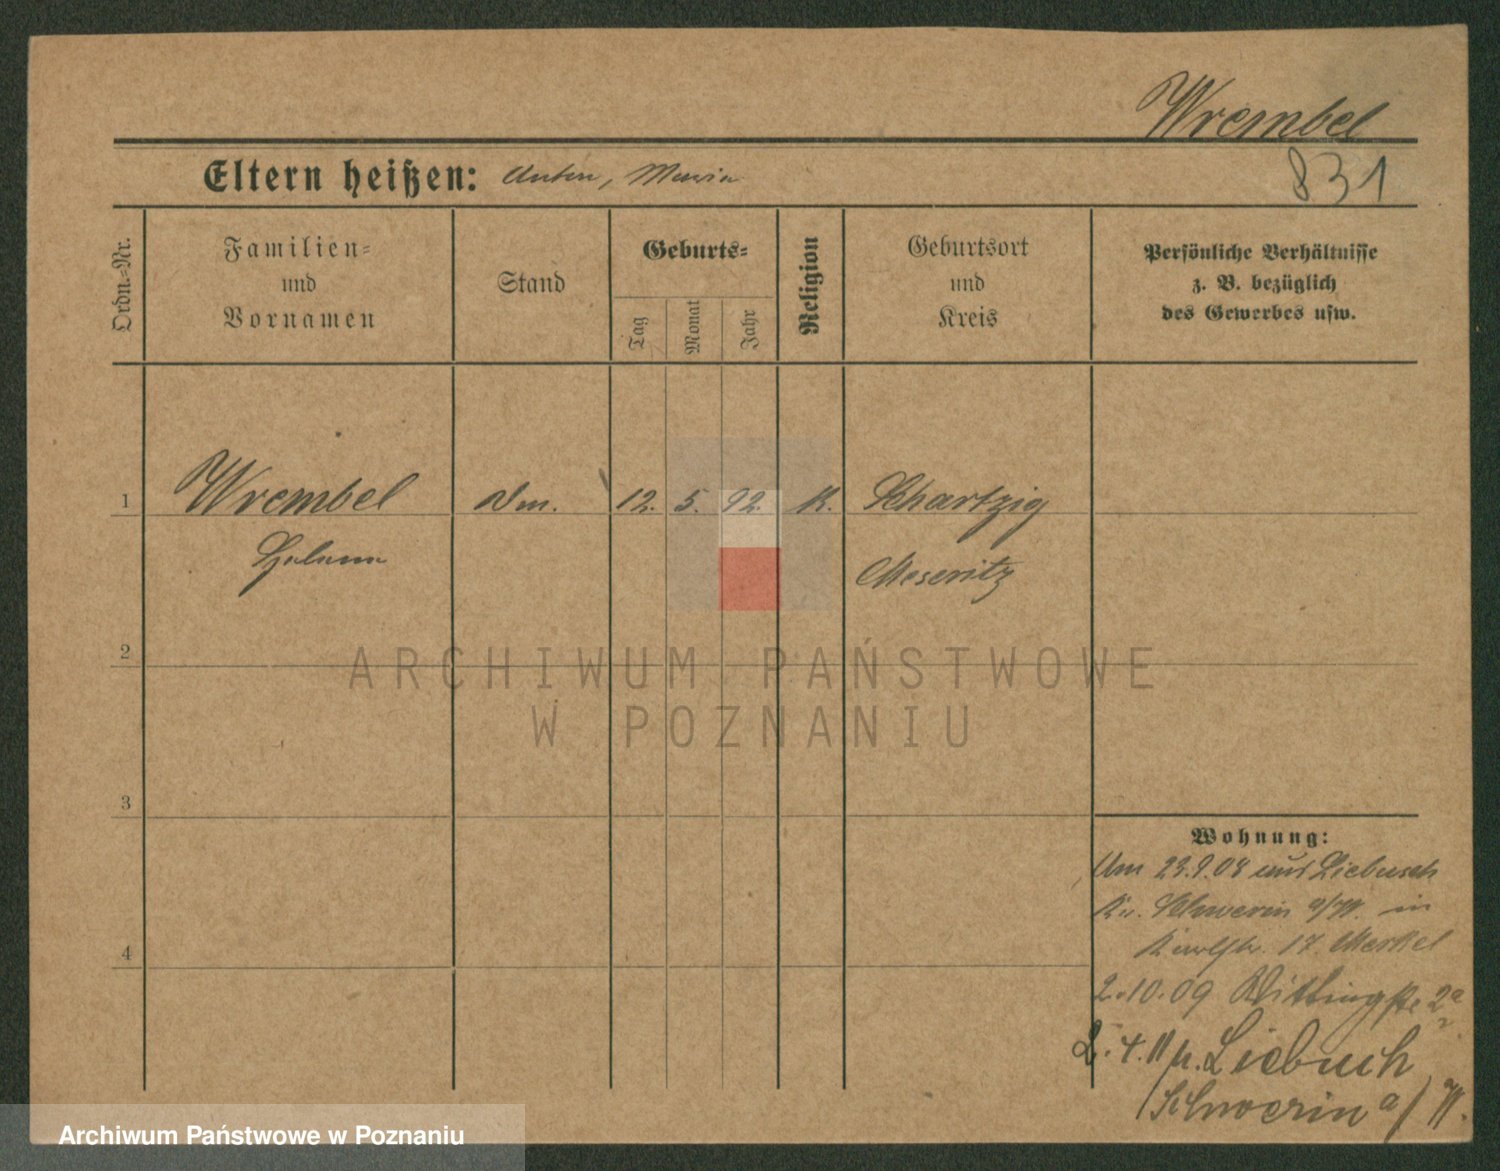 Wrembel
831
Eltern heißen: Anton, Maria
Ordn.-Nr.
Familien-
und
Vornamen
Stand
Geburts-
Tag
Monat
Jahr
Religion
Geburtsort
und
Kreis
Persönliche Verhältnisse
z. B. bezüglich
des Gewerbes usw.
1 Wrembel Dm. 12. 5. 92. K. Schartzig
Helena Meseritz
2
3
4
Wohnung:
Am 23.9.08 aus Liebuch
Kr. Schwerin a/W. in
Karlstr. 17. Merkel
2.10.09 2a
2.4.11 n. Liebuch
Schwerin a/W.
ARCHIWUM PAŃSTWOWE
W POZNANIU
Archiwum Państwowe w Poznaniu